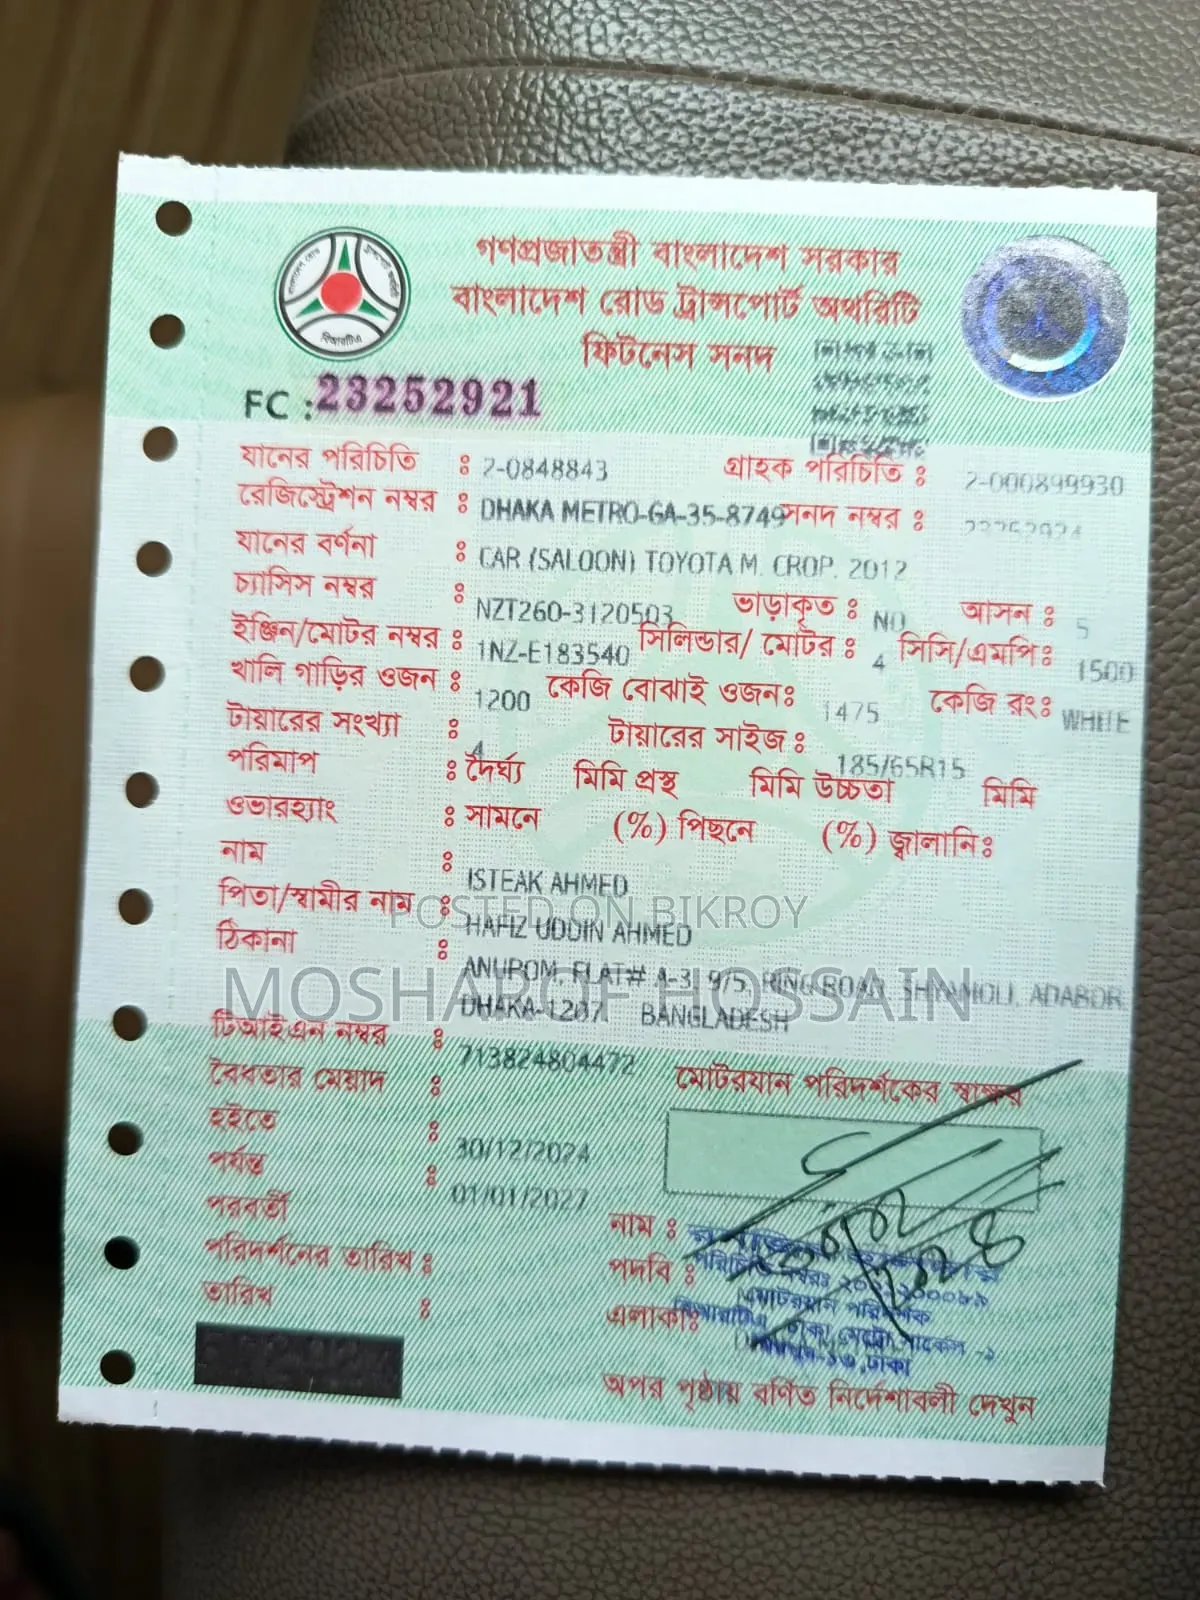 গণপ্রজাতন্ত্রী বাংলাদেশ সরকার
বাংলাদেশ রোড ট্রান্সপোর্ট অথরিটি
ফিটনেস সনদ
বিআরটিএ
FC : 23252921
যানের পরিচিতি : 2-0848843 গ্রাহক পরিচিতি : 2-000899930
রেজিস্ট্রেশন নম্বর : DHAKA METRO-GA-35-8749 সনদ নম্বর :
যানের বর্ণনা : CAR (SALOON) TOYOTA M. CROP. 2012
চ্যাসিস নম্বর : NZT260-3120503 ভাড়াকৃত : NO আসন : 5
ইঞ্জিন/মোটর নম্বর : 1NZ-E183540 সিলিন্ডার/ মোটর : 4 সিসি/এমপি: 1500
খালি গাড়ির ওজন : 1200 কেজি বোঝাই ওজন: 1475 কেজি রং: WHITE
টায়ারের সংখ্যা : 4 টায়ারের সাইজ : 185/65R15
পরিমাপ : দৈর্ঘ্য মিমি প্রস্থ মিমি উচ্চতা মিমি
ওভারহ্যাং : সামনে (%) পিছনে (%) জ্বালানি:
নাম : ISTEAK AHMED
পিতা/স্বামীর নাম : HAFIZ UDDIN AHMED
POSTED ON BIKROY
ঠিকানা : ANUPOM, FLAT# A-3, 9/5, RING ROAD, SHYAMOLI, ADABOR,
MOSHAROF HOSSAIN
DHAKA-1207, BANGLADESH
টিআইএন নম্বর : 713824804472
বৈধতার মেয়াদ : মোটরযান পরিদর্শকের স্বাক্ষর
হইতে : 30/12/2024
পর্যন্ত : 01/01/2027
পরবর্তী
পরিদর্শনের তারিখ :
তারিখ :
নাম :
পদবি : পরিচিতি নম্বরঃ
মোটরযান পরিদর্শক
এলাকা: বিআরটিএ, ঢাকা মেট্রো সার্কেল -১
মিরপুর-১৩, ঢাকা
অপর পৃষ্ঠায় বর্ণিত নির্দেশাবলী দেখুন